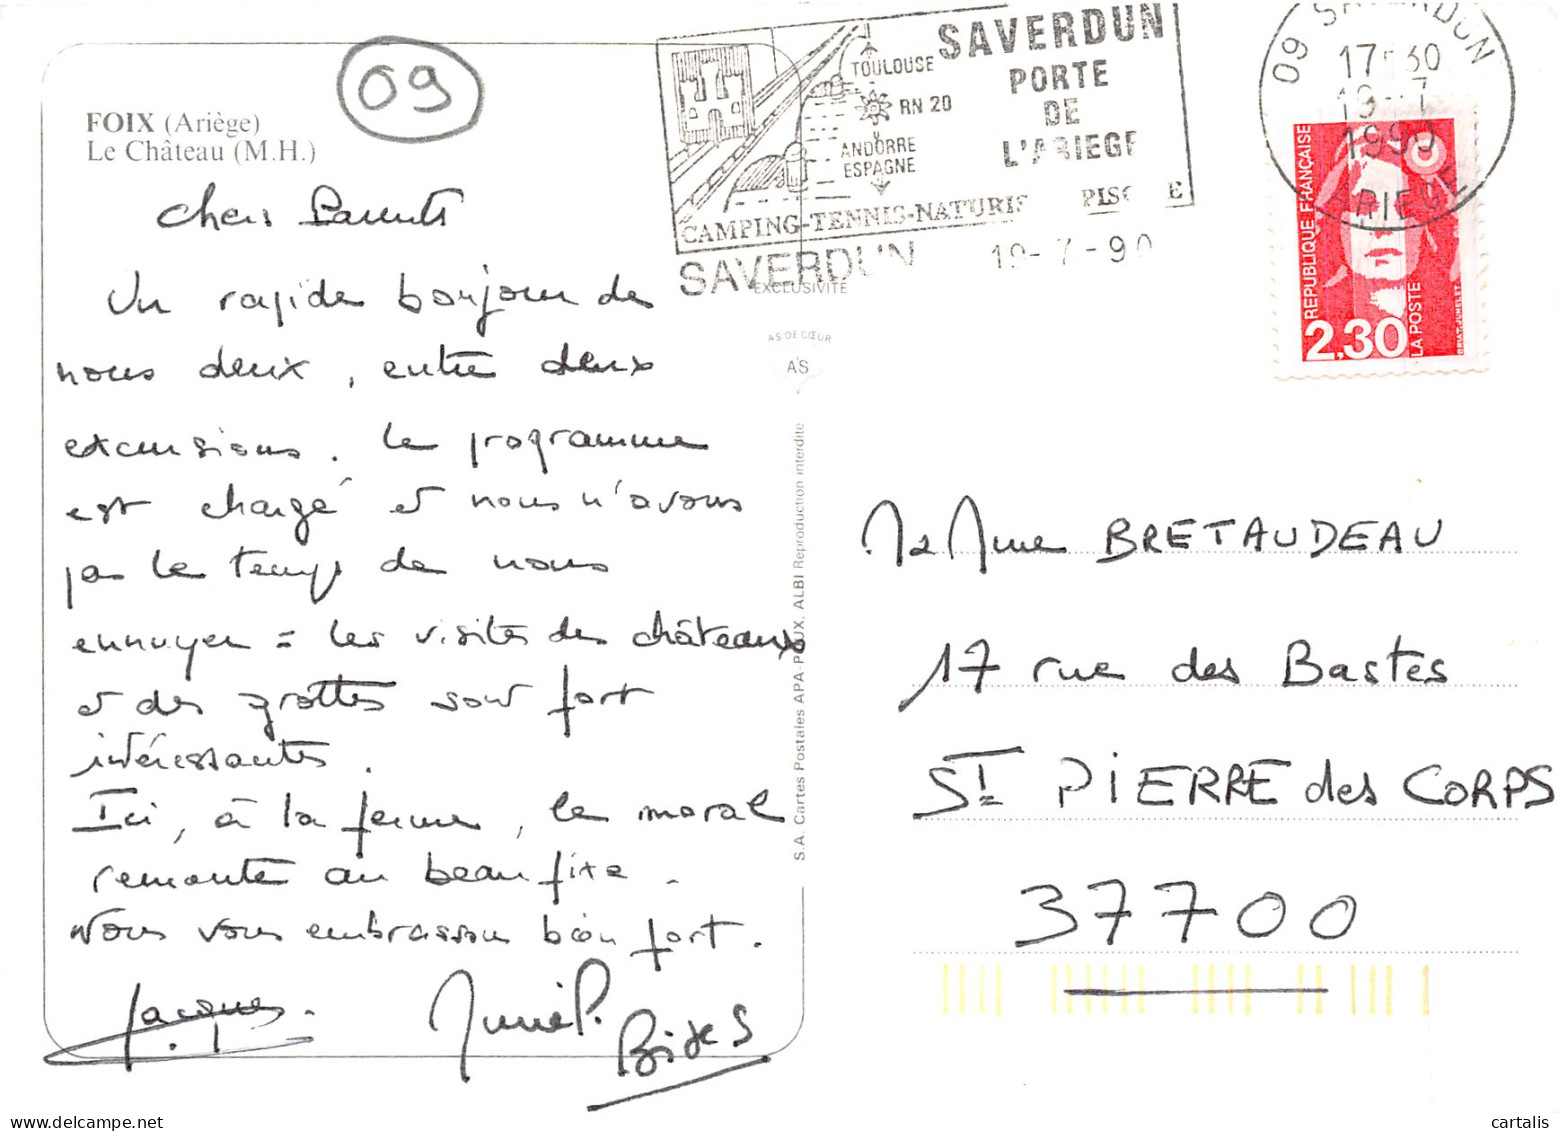 FOIX (Ariège)
Le Château (M.H.)
09
Chers Parents
Un rapide bonjour de
nous deux, entre deux
excursions. Le programme
est chargé et nous n'avons
pas le temps de nous
ennuyer = les visites des châteaux
et des grottes sont fort
intéressantes.
Ici, à la ferme, le moral
remonte au beau fixe.
Nous vous embrassons bien fort.
Jacques.
Bises
TOULOUSE
RN 20
ANDORRE
ESPAGNE
SAVERDUN
PORTE
DE
L'ARIEGE
CAMPING-TENNIS-NATURIS PISC E
SAVERDUN 19-7-90
EXCLUSIVITÉ
AS DE CŒUR
AS
S.A. Cartes Postales APA-POUX, ALBI Reproduction interdite
09 SAVERDUN
17 30
19-7
1990
ARIEGE
REPUBLIQUE FRANÇAISE
2,30
LA POSTE
BRIAT-JUMELET
M & Mme BRETAUDEAU
17 rue des Bastes
ST PIERRE des CORPS
37700
cartalis